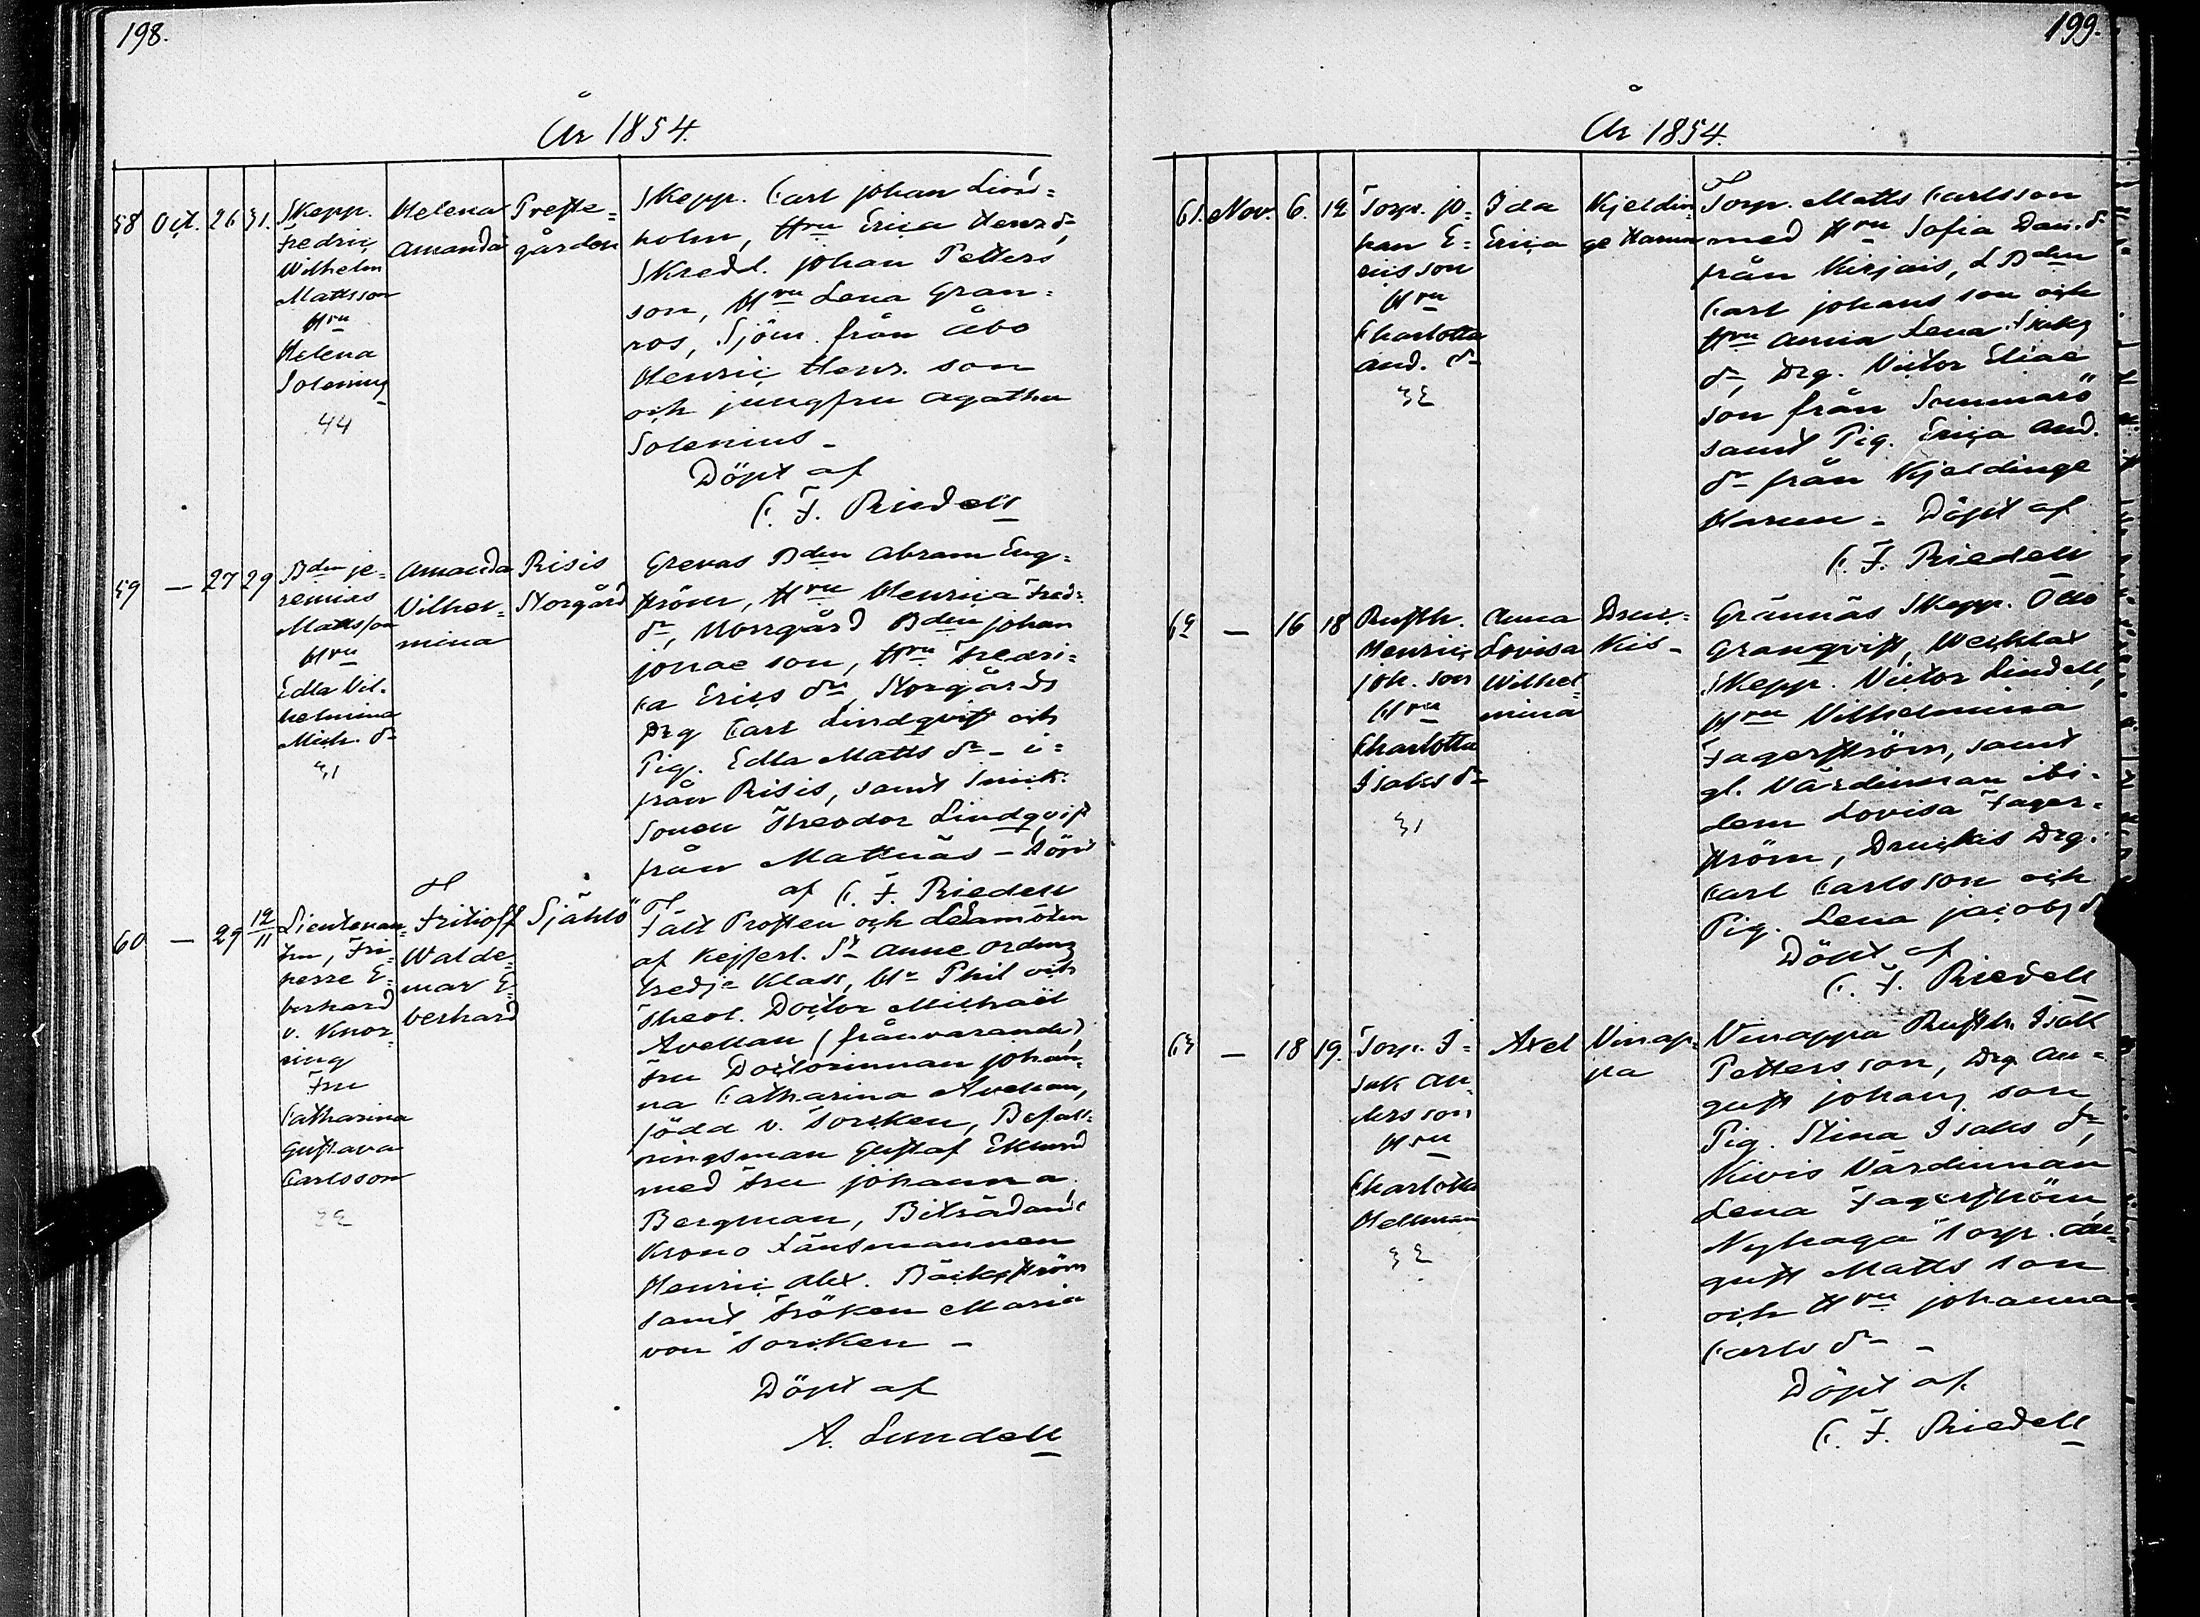 198.
År 1854.
58 Oct. 26 31.
Skepp.
Fredric
Wilhelm
Mattsson
Hru
Helena
Solenius
44
Helena
Amanda
Preste=
gården
Skepp. Carl Johan Lind=
holm, Hru Erica Henrs dr
Skredd. Johan Petters
son, Hru Lena Gran=
ros, Sjöm. från Åbo
Henric Henr. son
och jungfru Agatha
Solenius -
Döpt af
C. F. Riedell
59 — 27 29
Bden Je=
remias
Mattsson
Hru
Edla Vil.
helmina
Mich. dr
31
Amanda
Vilhel=
mina
Risis
Storgård
Grevas Bden Abram Eng=
ström, Hru Henrica Fredr.
dr, Norrgård Bden Johan
Jonae son, Hru Fredri=
ca Erics dr, Storgårds
Drg Carl Lindqvist och
Pig. Edla Matts dr - i=
från Risis, samt Smick.
Sonen Theodor Lindqvist
från Mattnäs - Döpt
af C. F. Riedell
60 — 29 12/11
Lieutenan=
ten, Fri=
herre E=
berhard
v. Knor=
ring
Fru
Catharina
Gustava
Carlsson
32
Fritioff
Walde=
mar E=
berhard
Själlö
Fält Prosten och Ledamöten
af Kejserl. St Anne Ordens
tredje Klass, Hr Phil och
Theol. Doctor Michaël
Avellan (frånvarande)
Fru Doctorinnan Johan=
na Catharina Avellan,
född v. Torcken, Befall=
ningsman Gustaf Eklund
med Fru Johanna
Bergman, Biträdande
Krono Länsmannen
Henric Alex. Bäckström
samt Fröken Maria
von Torcken -
Döpt af
A. Lundell
199.
År 1854.
61. Nov. 6. 12
Torp. Jo=
han E=
ricsson
Hru
Charlotta
And. dr
32
Ida
Erica
Kjeldin=
ge Harun
Torp. Matts Carlsson
med Hru Sofia Dan. dr
från Kirjais, d Bden
Carl Johans son och
Hru Anna Lena Isaks
dr, Drg. Victor Eliae
son från Sommarö
samt Pig. Erica And.
dr från Kjeldinge
Harun - Döpt af
C. F. Riedell
62 — 16 18
Rusth.
Henric
Joh. son
Hru
Charlotta
Isaks dr
31
Anna
Lovisa
Wilhel=
mina
Druc=
kis -
Grännäs Skepp. Otto
Granqvist, Wechlax
Skepp. Victor Lindell,
Hru Vilhelmina
Fagerström, samt
gl. Värdinnan ibi=
dem Lovisa Fager=
ström, Druckis Drg.
Carl Carlsson och
Pig. Lena Jacobs dr
Döpt af
C. F. Riedell
63 — 18 19.
Torp. I=
sak An=
dersson
Hru
Charlotta
Hellman
32
Axel
Vinap=
pa
Vinappa Rusth. Isak
Petters son, Drg Au=
gust Johans son
Pig. Stina Isaks dr,
Kivis Värdinnan
Lena Fagerström
Nyhaga Torp. Au=
gust Matts son
och Hru Johanna
Carls dr -
Döpt af
C. F. Riedell